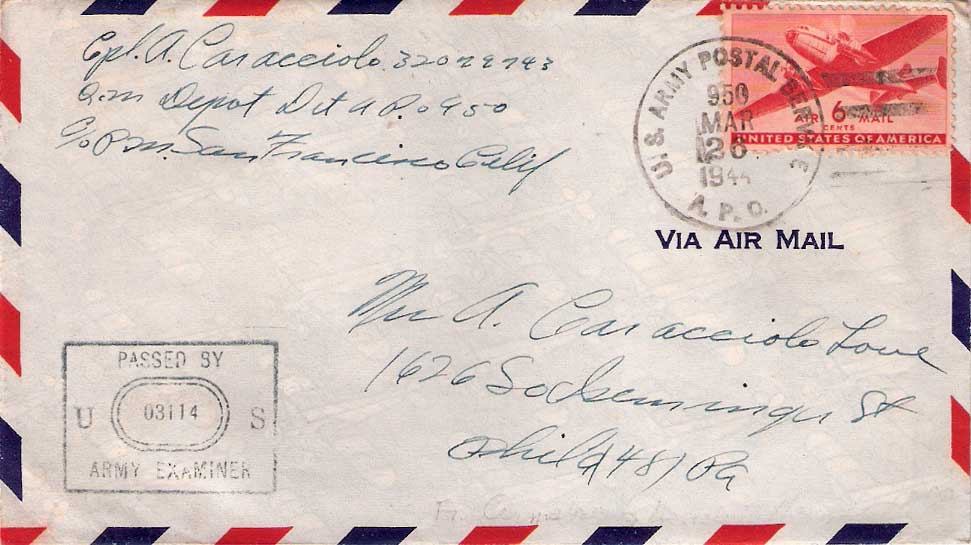 Cpl. A. Caracciolo 32079743
Q.M Depot Det A.P.O 950
C/O P.M. San Francisco Calif
U.S. ARMY POSTAL SERVICE
950
MAR
26
1944
A.P.O.
AIR 6 MAIL
CENTS
UNITED STATES OF AMERICA
VIA AIR MAIL
A. Caracciolo Lowe
1626 So. St
Phila (48) Pa
PASSED BY
U 03114 S
ARMY EXAMINER